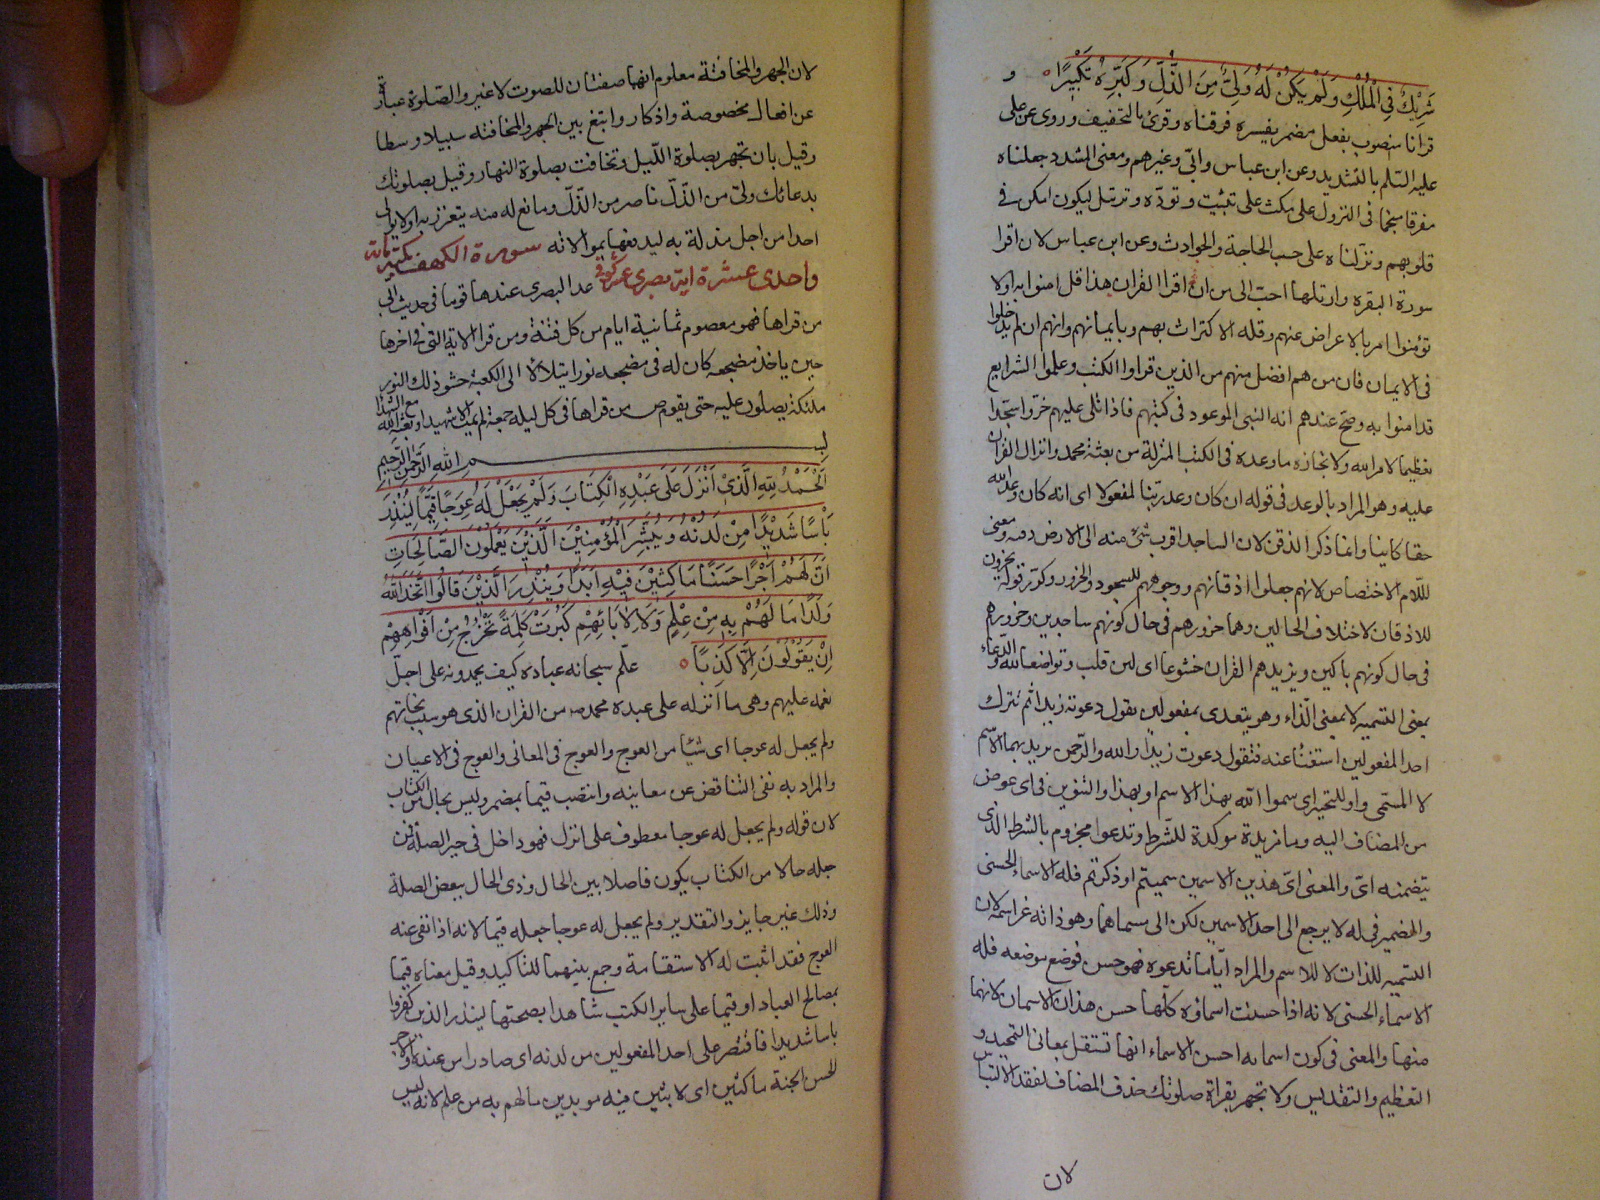 شَرِيكٌ فِي الْمُلْكِ وَلَمْ يَكُنْ لَهُ وَلِيٌّ مِنَ الذُّلِّ وَكَبِّرْهُ تَكْبِيرًا و
قرانا منصوب بفعل مضمر يفسره فرقناه وقرئ بالتخفيف وروى عن على
عليه السلم بالتشديد وعن ابن عباس وابّى وغيرهم ومعنى المشدد جعلناه
مفرقا منجما فى النزول على مكث على تثبيت وتوءده وترتل ليكون امكن فى
قلوبهم ونزلناه على حسب الحاجة والحوادث وعن ابن عباس لان اقرا
سورة البقره وارتلها احب الى من ان اقرا القران هذا قل امنوا به اولا
تؤمنوا امر بالاعراض عنهم وقله الاكتراث بهم وبايمانهم وانهم ان لم يدخلوا
فى الايمان فان من هم افضل منهم من الذين قراوا الكتب وعلموا الشرايع
قد امنوا به وصح عندهم انه النبى الموعود فى كتبهم فاذا تلى عليهم خروا سجدا
تعظيما لامر الله ولانجازه ما وعده فى الكتب المنزلة من بعثة محمد وانزال القران
عليه وهو المراد بالوعد فى قوله ان كان وعد ربنا لمفعولا اى انه كان وعد الله
حقا كاينا وانما ذكر الذقن لان الساجد اقرب شئ منه الى الارض ذقنه ومعنى
اللام الاختصاص لانهم جعلوا اذقانهم ووجوههم للسجود والخرور وكرر قوله يخرون
للاذقان لاختلاف الحالين وهما خرورهم فى حال كونهم ساجدين وخرورهم
فى حال كونهم باكين ويزيدهم القران خشوعا اى لين قلب وتواضعا لله والدعاء
بمعنى التسميه لا بمعنى النداء وهو يتعدى بمفعولين يقول دعوته زيدا ثم تترك
احد المفعولين استغناء عنه فتقول دعوت زيدا والله والرحمن يريد بهما الاسم
لا المسمى واو للتخيير اى سموا الله بهذا الاسم او بهذا والتنوين فى اى عوض
من المضاف اليه وما مزيدة موكدة للشرط وتدعوا مجزوم بالشرط الذى
يتضمنه اى والمعنى اى هذين الاسمين سميتم او ذكرتم فله الاسماء الحسنى
والضمير فى له لا يرجع الى احد الاسمين لكن الى مسماهما وهو ذاته عز اسمه لان
التسميه للذات لا للاسم والمراد ايا ما تدعوه فهو حسن فوضع موضعه فله
الاسماء الحسنى لانه اذا حسنت اسماؤه كلها حسن هذان الاسمان لانهما
منها والمعنى فى كون اسمائه احسن الاسماء انها تستقل بمعانى التحيد و
التعظيم والتقديس ولا تجهر بقراة صلوتك حذف المضاف لفقد الالتباس
لان
لان الجهر والمخافتة معلوم انهما صفتان للصوت لا غير والصلوة عبارة
عن افعال مخصوصة واذكار وابتغ بين الجهر والمخافته سبيلا وسطا
وقيل بان تجهر بصلوة الليل وتخافت بصلوة النهار وقيل بصلوتك
بدعائك ولى من الذل ناصر من الذل ومانع له منه يتعزز به اولا يوالى
احدا من اجل مذلة به ليدفعها بموالاته سورة الكهف مكية مائة
واحدى عشرة اية بصرى عشر كوفى عدا البصرى عندها قوما فى حديث ابى
من قراها فهو معصوم ثمانية ايام من كل فتنة ومن قرا الاية التى فى اخرها
حين ياخذ مضجعه كان له فى مضجعه نورا يتلألأ الى الكعبة حشو ذلك النور
ملئكة يصلون عليه حتى يقوم ص من قراها فى كل ليلة جمعة لم يمت الا شهيدا وبعثه الله مع الشهدا
بسم الله الرحمن الرحيم
اَلْحَمْدُ لِلّهِ الَّذِي أَنْزَلَ عَلَى عَبْدِهِ الْكِتَابَ وَلَمْ يَجْعَلْ لَهُ عِوَجًا قَيِّمًا لِيُنْذِرَ
بَأْسًا شَدِيدًا مِنْ لَدُنْهُ وَيُبَشِّرَ الْمُؤْمِنِينَ الَّذِينَ يَعْمَلُونَ الصَّالِحَاتِ
اَنَّ لَهُمْ اَجْرًا حَسَنًا مَاكِثِينَ فِيهِ اَبَدًا وَيُنْذِرَ الَّذِينَ قَالُوا اتَّخَذَ اللّهُ
وَلَدًا مَا لَهُمْ بِهِ مِنْ عِلْمٍ وَلَا لِآبَائِهِمْ كَبُرَتْ كَلِمَةً تَخْرُجُ مِنْ اَفْوَاهِهِمْ
اِنْ يَقُولُونَ اِلَّا كَذِبًا علّم سبحانه عباده كيف يحمدونه على اجلّ
نعمه عليهم وهى ما انزله على عبده محمد ص من القران الذى هو سبب نجاتهم
ولم يجعل له عوجا اى شيئا من العوج والعوج فى المعانى والعوج فى الاعيان
والمراد به نفى التناقض عن معانيه وانتصب قيما بمضمر وليس بحال من الكتاب
لان قوله ولم يجعل له عوجا معطوف على انزل فهو داخل فى حيز الصلة فمن
جعله حالا من الكتاب يكون فاصلا بين الحال وذى الحال ببعض الصلة
وذلك غير جايز والتقدير ولم يجعل له عوجا جعله قيما لانه اذا نفى عنه
العوج فقد اثبت له الاستقامة وجمع بينهما للتاكيد وقيل معناه قيما
بمصالح العباد او قيما على ساير الكتب شاهدا بصحتها لينذر الذين كفروا
باسا شديدا فاقتصر على احد المفعولين من لدنه اى صادرا من عنده والاجر
الحسن الجنة ماكثين اى لابثين فيه موبدين مالهم به من علم لانه ليس